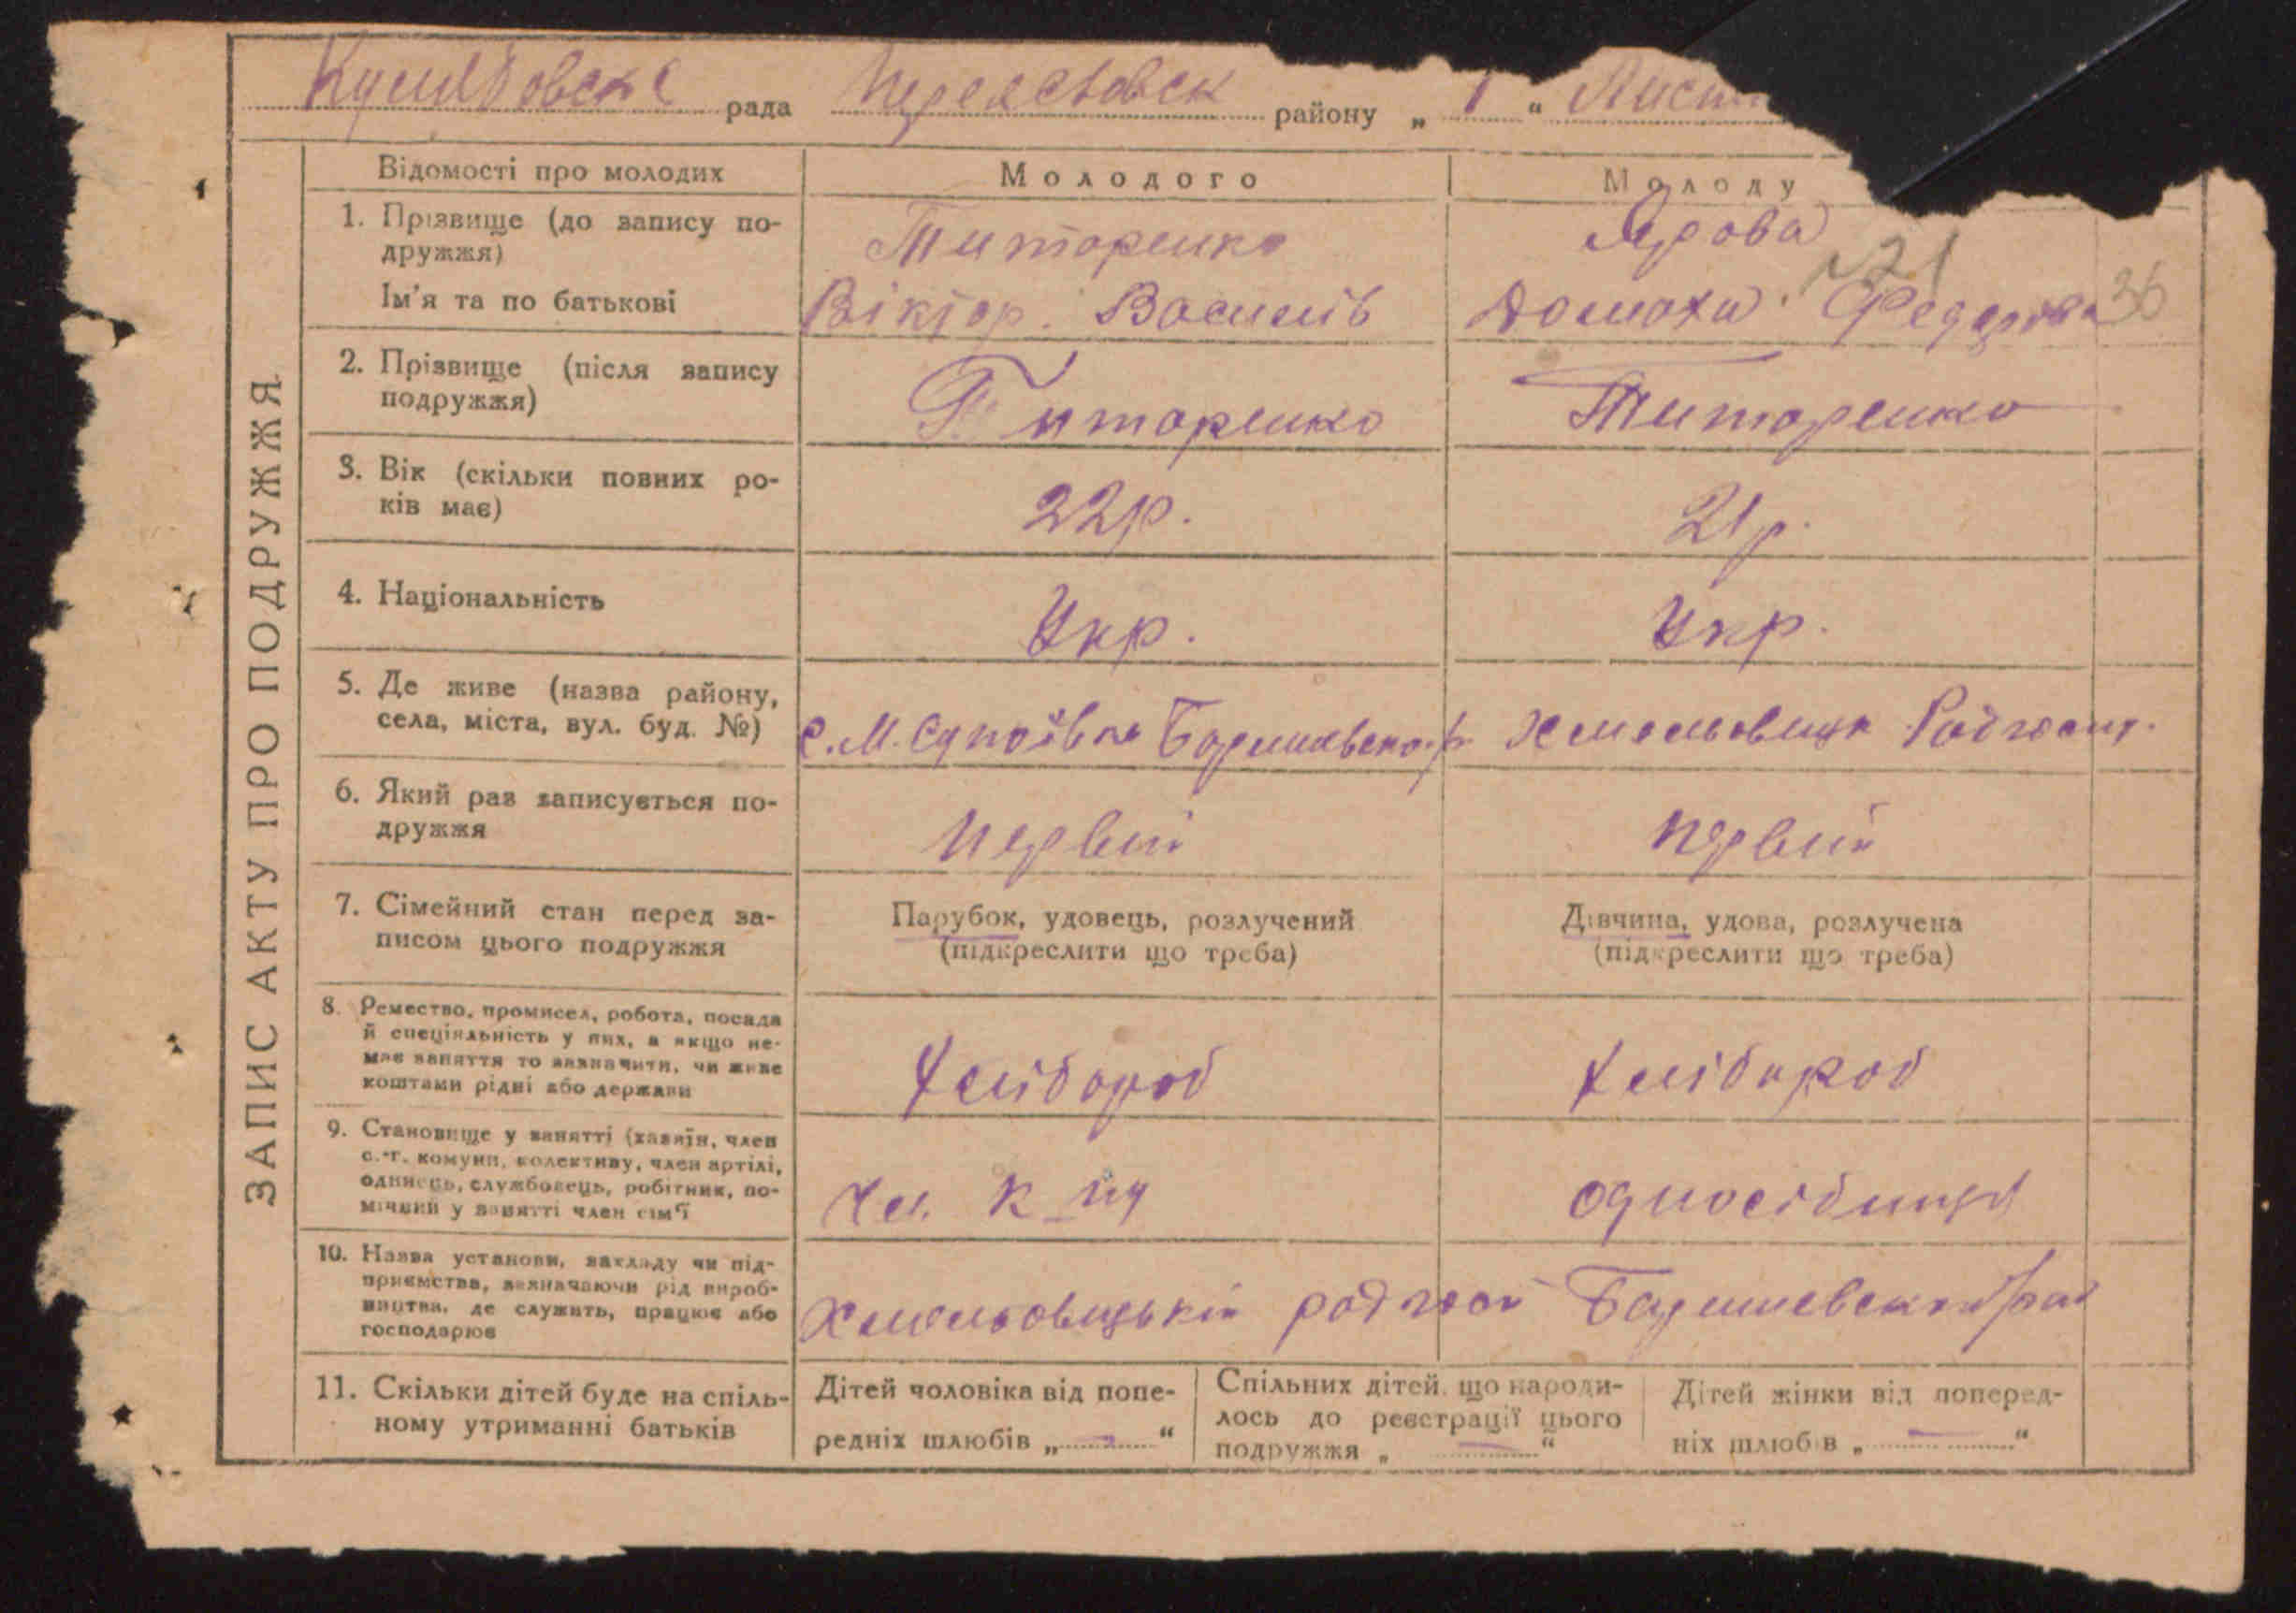 рада району „ 1 “ Лист
ЗАПИС АКТУ ПРО ПОДРУЖЖЯ
Відомості про молодих
Молодого
Молоду
1. Прізвище (до запису по-
дружжя)
Ім'я та по батькові
Титоренко
Віктор. Василів
Ярова
Домаха Федорова
№21
36
2. Прізвище (після запису
подружжя)
Титоренко
Титоренко
3. Вік (скільки повних ро-
ків має)
22р.
21р.
4. Національність
Укр.
Укр.
5. Де живе (назва району,
села, міста, вул. буд. №)
с. М. Супоївка Баришевско. р.
Радгосп.
6. Який раз записується по-
дружжя
Первий
Первий
7. Сімейний стан перед за-
писом цього подружжя
Парубок, удовець, розлучений
(підкреслити що треба)
Дівчина, удова, розлучена
(підкреслити що треба)
8. Ремество, промисел, робота, посада
й спеціяльність у них, а якщо не-
має заняття то зазначити, чи живе
коштами рідні або держави
Хлібороб
Хлібороб
9. Становище у занятті (хазяїн, член
с.-г. комуни, колективу, член артілі,
одинець, службовець, робітник, по-
мічний у занятті член сім'ї
Чл. к-пу
одноосібниця
10. Назва установи, закладу чи під-
приємства, зазначаючи рід вироб-
ництва, де служить, працює або
господарює
радгосп Баришевский рай
11. Скільки дітей буде на спіль-
ному утриманні батьків
Дітей чоловіка від попе-
редніх шлюбів „ — “
Спільних дітей, що народи-
лось до реєстрації цього
подружжя „ — “
Дітей жінки від поперед-
ніх шлюбів „ — “